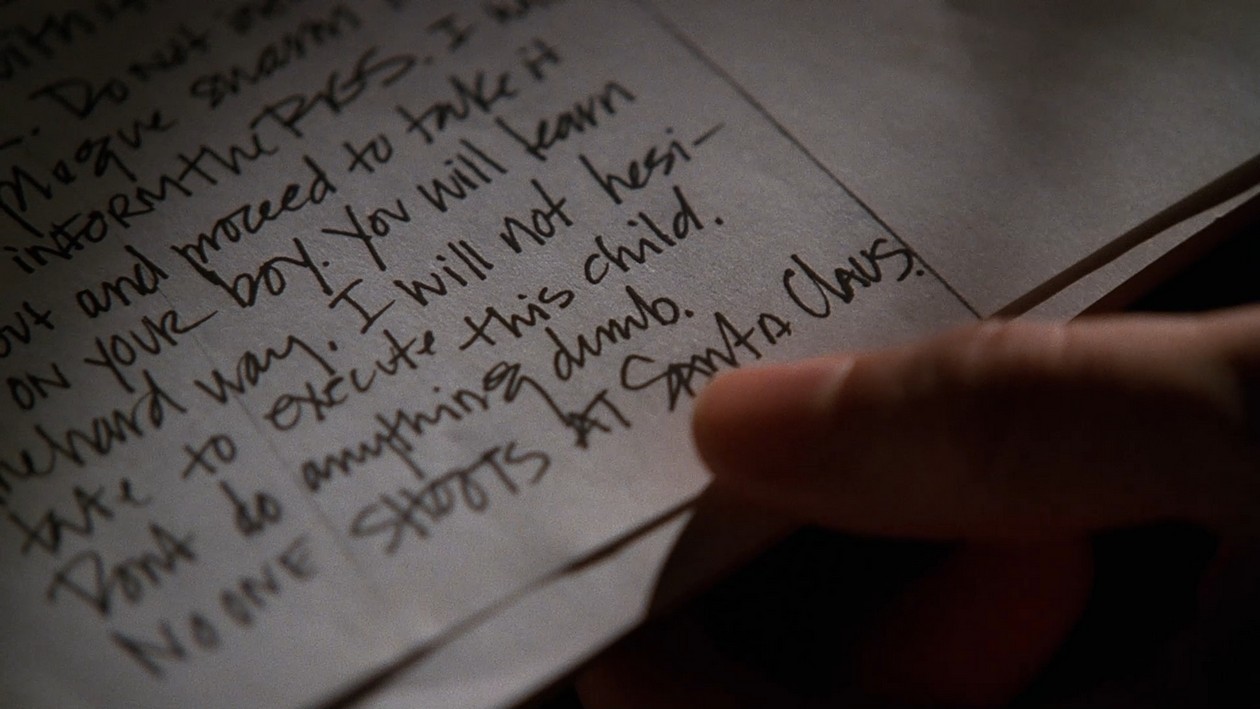 with
. Do not
plague swarm
inform the RGS. I
out and proceed to take it
on your boy. You will learn
hard way. I will not hesi-
tate to execute this child.
Dont do anything dumb.
NO ONE SHOOTS AT SANTA CLAUS.